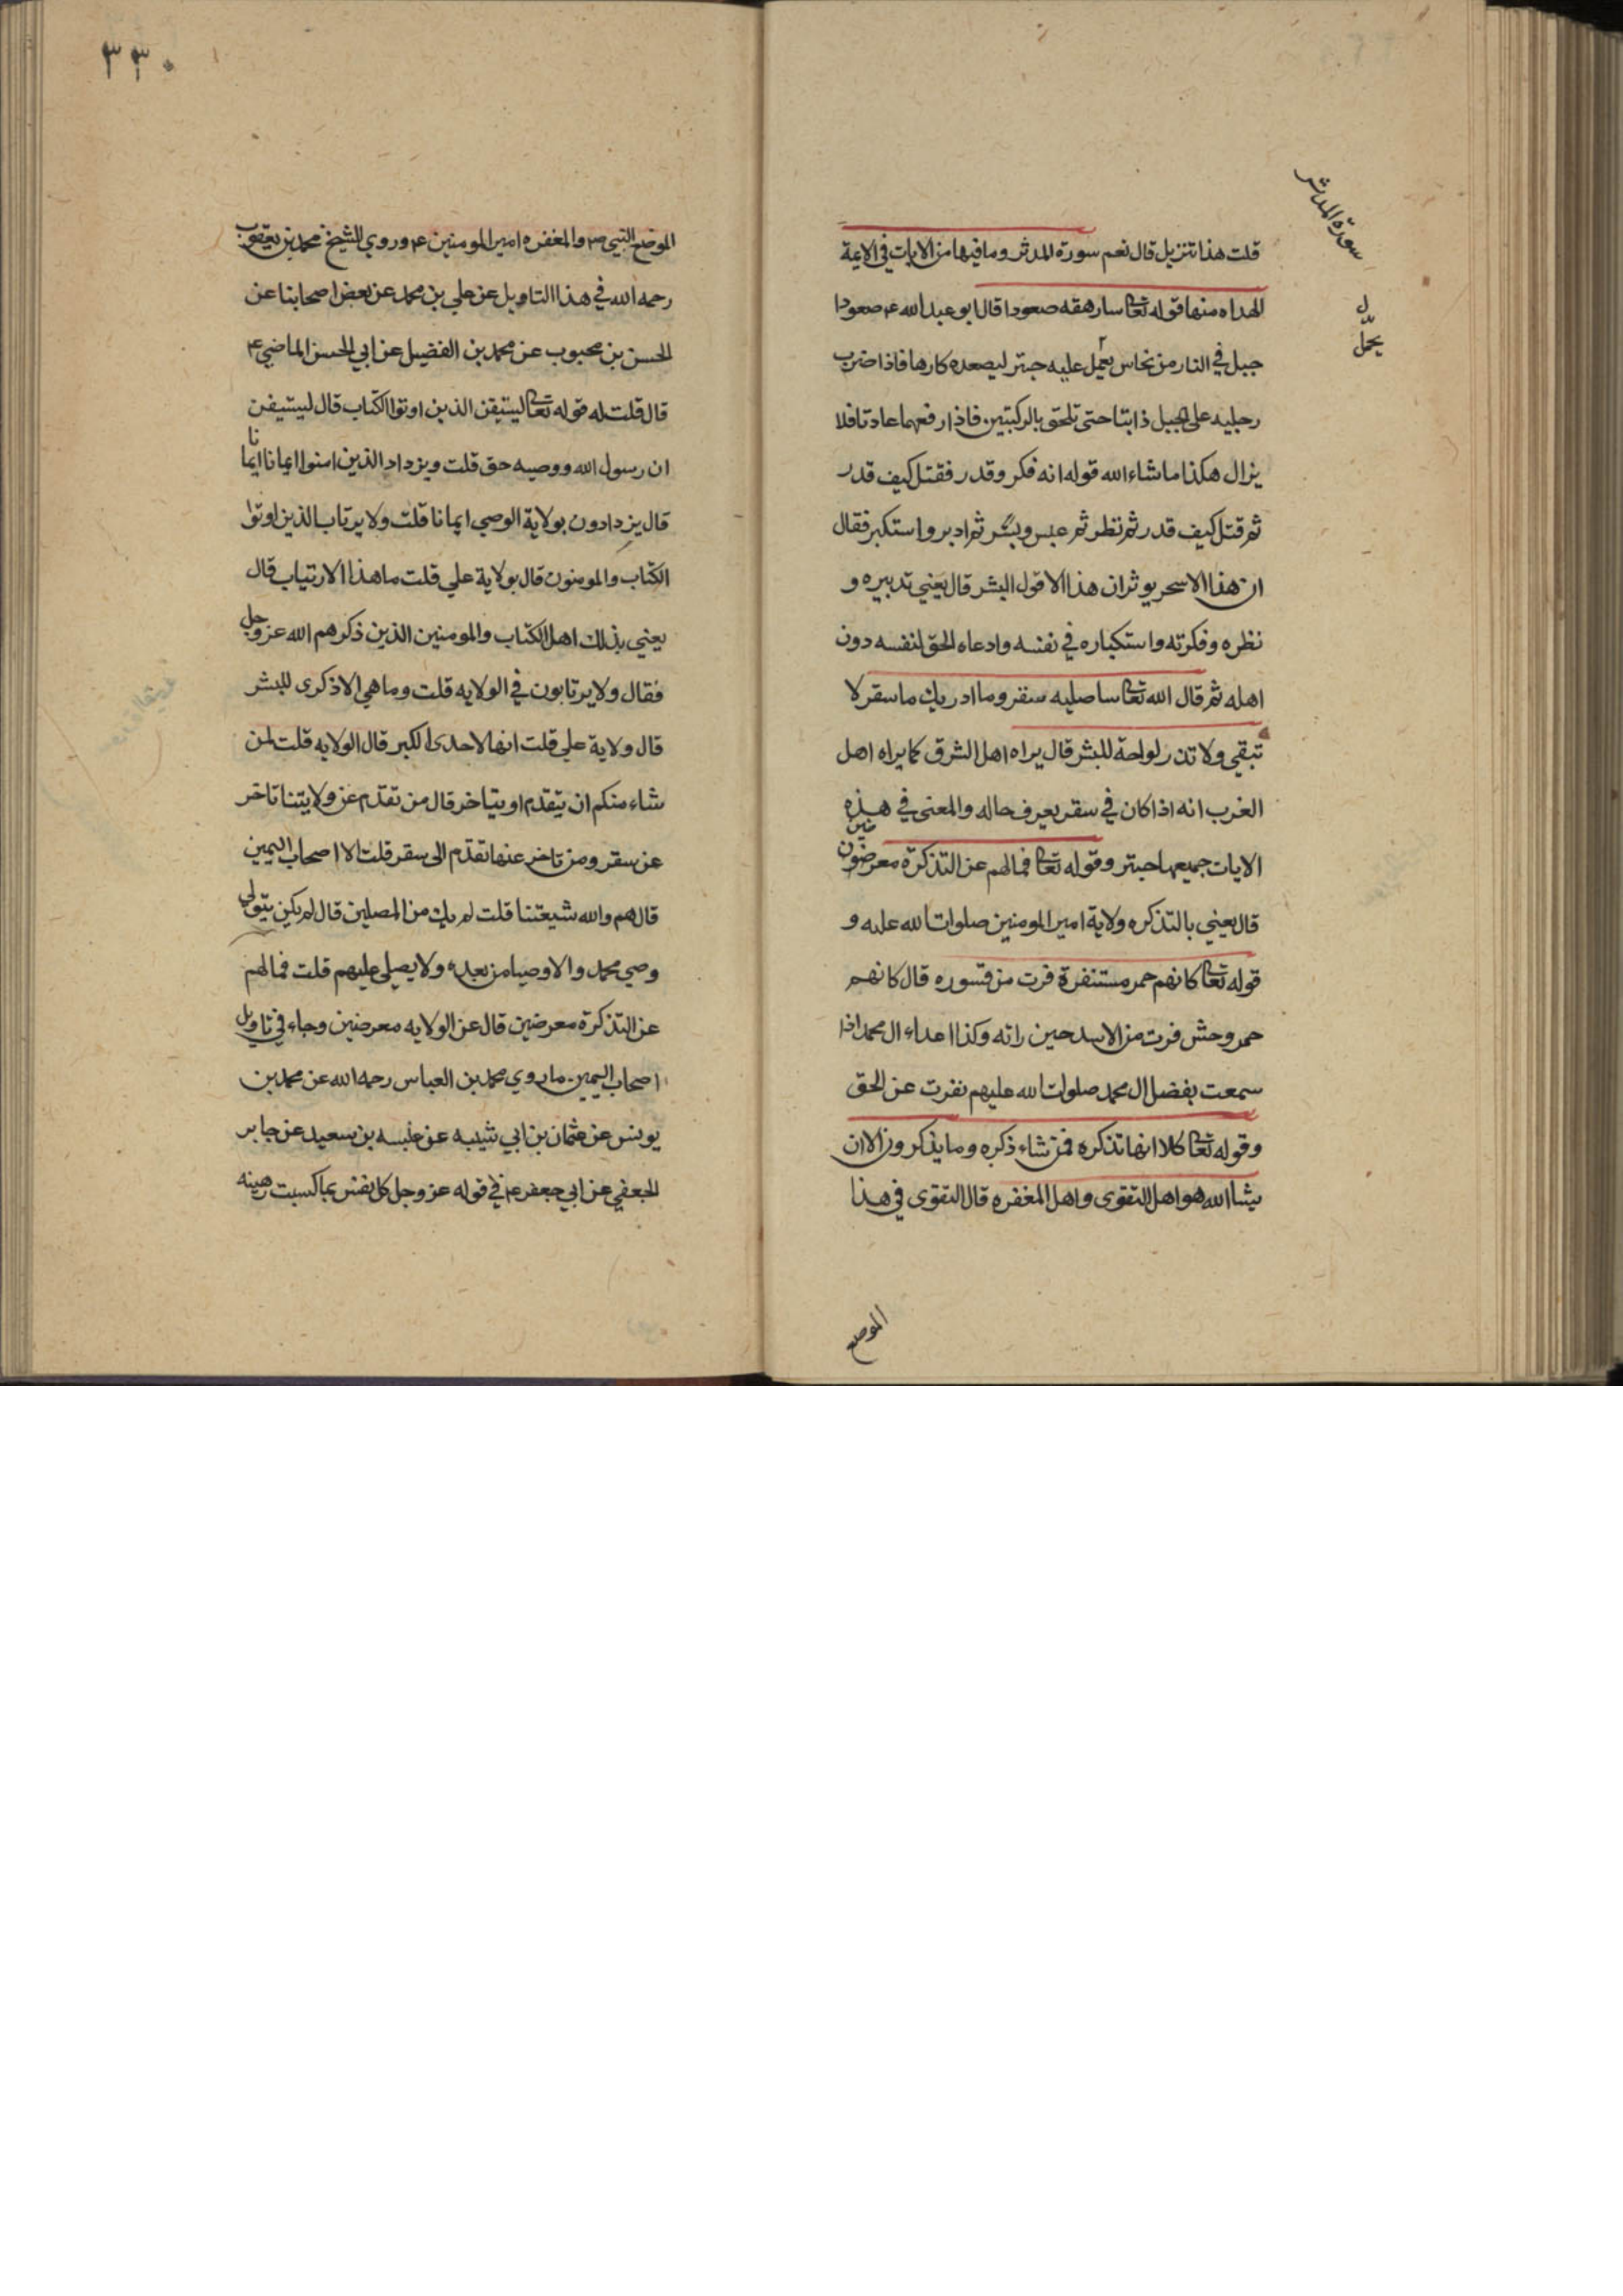 سورة المدثر
قلت هذا تنزيل قال نعم سورة المدثر وما فيها من الايات في الايمة
الهداه منها قوله تعا سارهقه صعودا قال ابو عبد الله ع صعودا
ل
يحمّل
جبل في النار من نحاس يعمل عليه حبتر ليصعده كارها فاذا ضرب
رجليه على الجبل ذابتا حتى تلحق بالركبتين فاذا رفعهما عادتا فلا
يزال هكذا ما شاء الله قوله انه فكر وقدر فقتل كيف قدر
ثم قتل كيف قدر ثم نظر ثم عبس وبسر ثم ادبر واستكبر فقال
ان هذا الا سحر يوثر ان هذا الا قول البشر قال يعني تدبيره و
نظره وفكرته واستكباره في نفسه وادعاه الحق لنفسه دون
اهله ثم قال الله تعا ساصليه سقر وما ادريك ما سقر لا
تبقي ولا تذر لواحة للبشر قال يراه اهل الشرق كما يراه اهل
الغرب انه اذا كان في سقر يعرف حاله والمعنى في هذه
الايات جميعها حبتر وقوله تعا فمالهم عن التذكرة معرضون
ضين
قال يعني بالتذكره ولاية امير المومنين صلوات الله عليه و
قوله تعا كانهم حمر مستنفرة فرت من قسوره قال كانهم
حمر وحش فرت من الاسد حين راته وكذا اعداء ال محمد اذا
سمعت بفضل ال محمد صلوات الله عليهم نفرت عن الحق
وقوله تعا كلا انها تذكره فمن شاء ذكره وما يذكرون الا ان
يشا الله هو اهل التقوى واهل المغفره قال التقوى في هذا
الموضع
٣٣٠
الموضع النبي ص والمغفره امير المومنين ع وروي الشيخ محمد بن يعقوب
رحمه الله في هذا التاويل عن علي بن محمد عن بعض اصحابنا عن
الحسن بن محبوب عن محمد بن الفضيل عن ابي الحسن الماضي ع
قال قلت له قوله تعا ليستيقن الذين اوتوا الكتاب قال ليستيقن
ان رسول الله ووصيه حق قلت ويزداد الذين امنوا ايمانا ايما
نا
قال يزدادون بولاية الوصي ايمانا قلت ولا يرتاب الذين اوتوا
الكتاب والمومنون قال بولاية علي قلت ما هذا الارتياب قال
يعني بذلك اهل الكتاب والمومنين الذين ذكرهم الله عز وجل
فقال ولا يرتابون في الولايه قلت وما هي الا ذكرى للبشر
قال ولاية علي قلت انها لاحدى الكبر قال الولايه قلت لمن
شاء منكم ان يتقدم او يتاخر قال من تقدم عن ولايتنا تاخر
عن سقر ومن تاخر عنها تقدم الى سقر قلت الا اصحاب اليمين
قال هم والله شيعتنا قلت لم يك من المصلين قال لم يكن يتولى
وصي محمد والاوصيا من بعده ولا يصلي عليهم قلت فمالهم
عن التذكرة معرضين قال عن الولايه معرضين وجاء في تاويل
اصحاب اليمين ما روي محمد بن العباس رحمه الله عن محمد بن
يونس عن عثمان بن ابي شيبه عن عنبسه بن سعيد عن جابر
الجعفي عن ابي جعفر ع في قوله عز وجل كل نفس بما كسبت رهينه